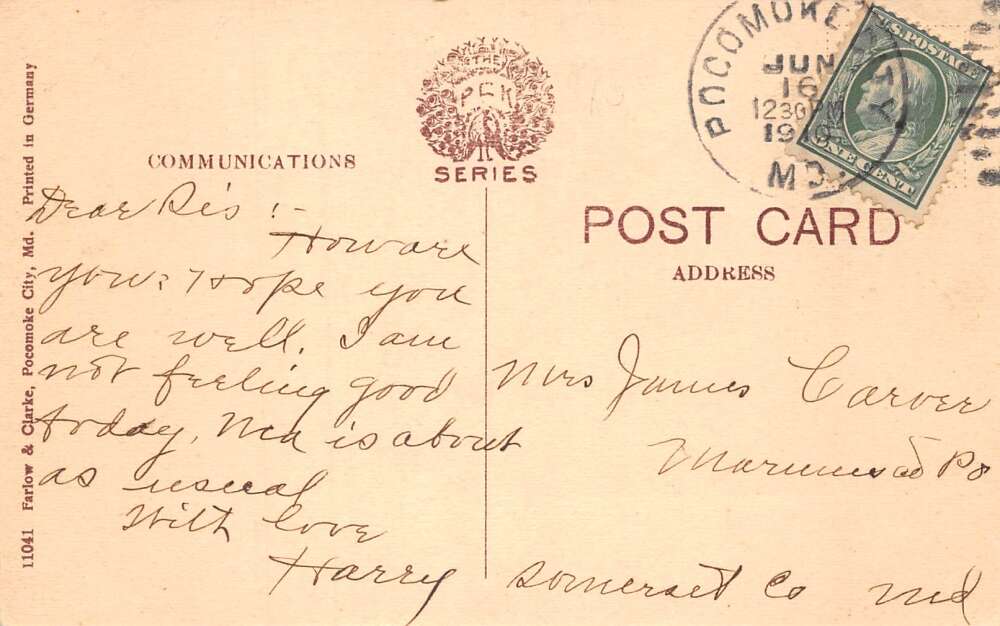 11041 Farlow & Clarke, Pocomoke City, Md. Printed in Germany
COMMUNICATIONS
THE
PCK
SERIES
POCOMOKE CITY
JUN
16
1230PM
19
MD.
U.S. POSTAGE
ONE CENT
POST CARD
ADDRESS
Dear Sis :-
How are
you? Hope you
are well. I am
not feeling good
today, Ma is about
as usual
With love
Harry
Mrs James Carver
Po
Somerset Co Md